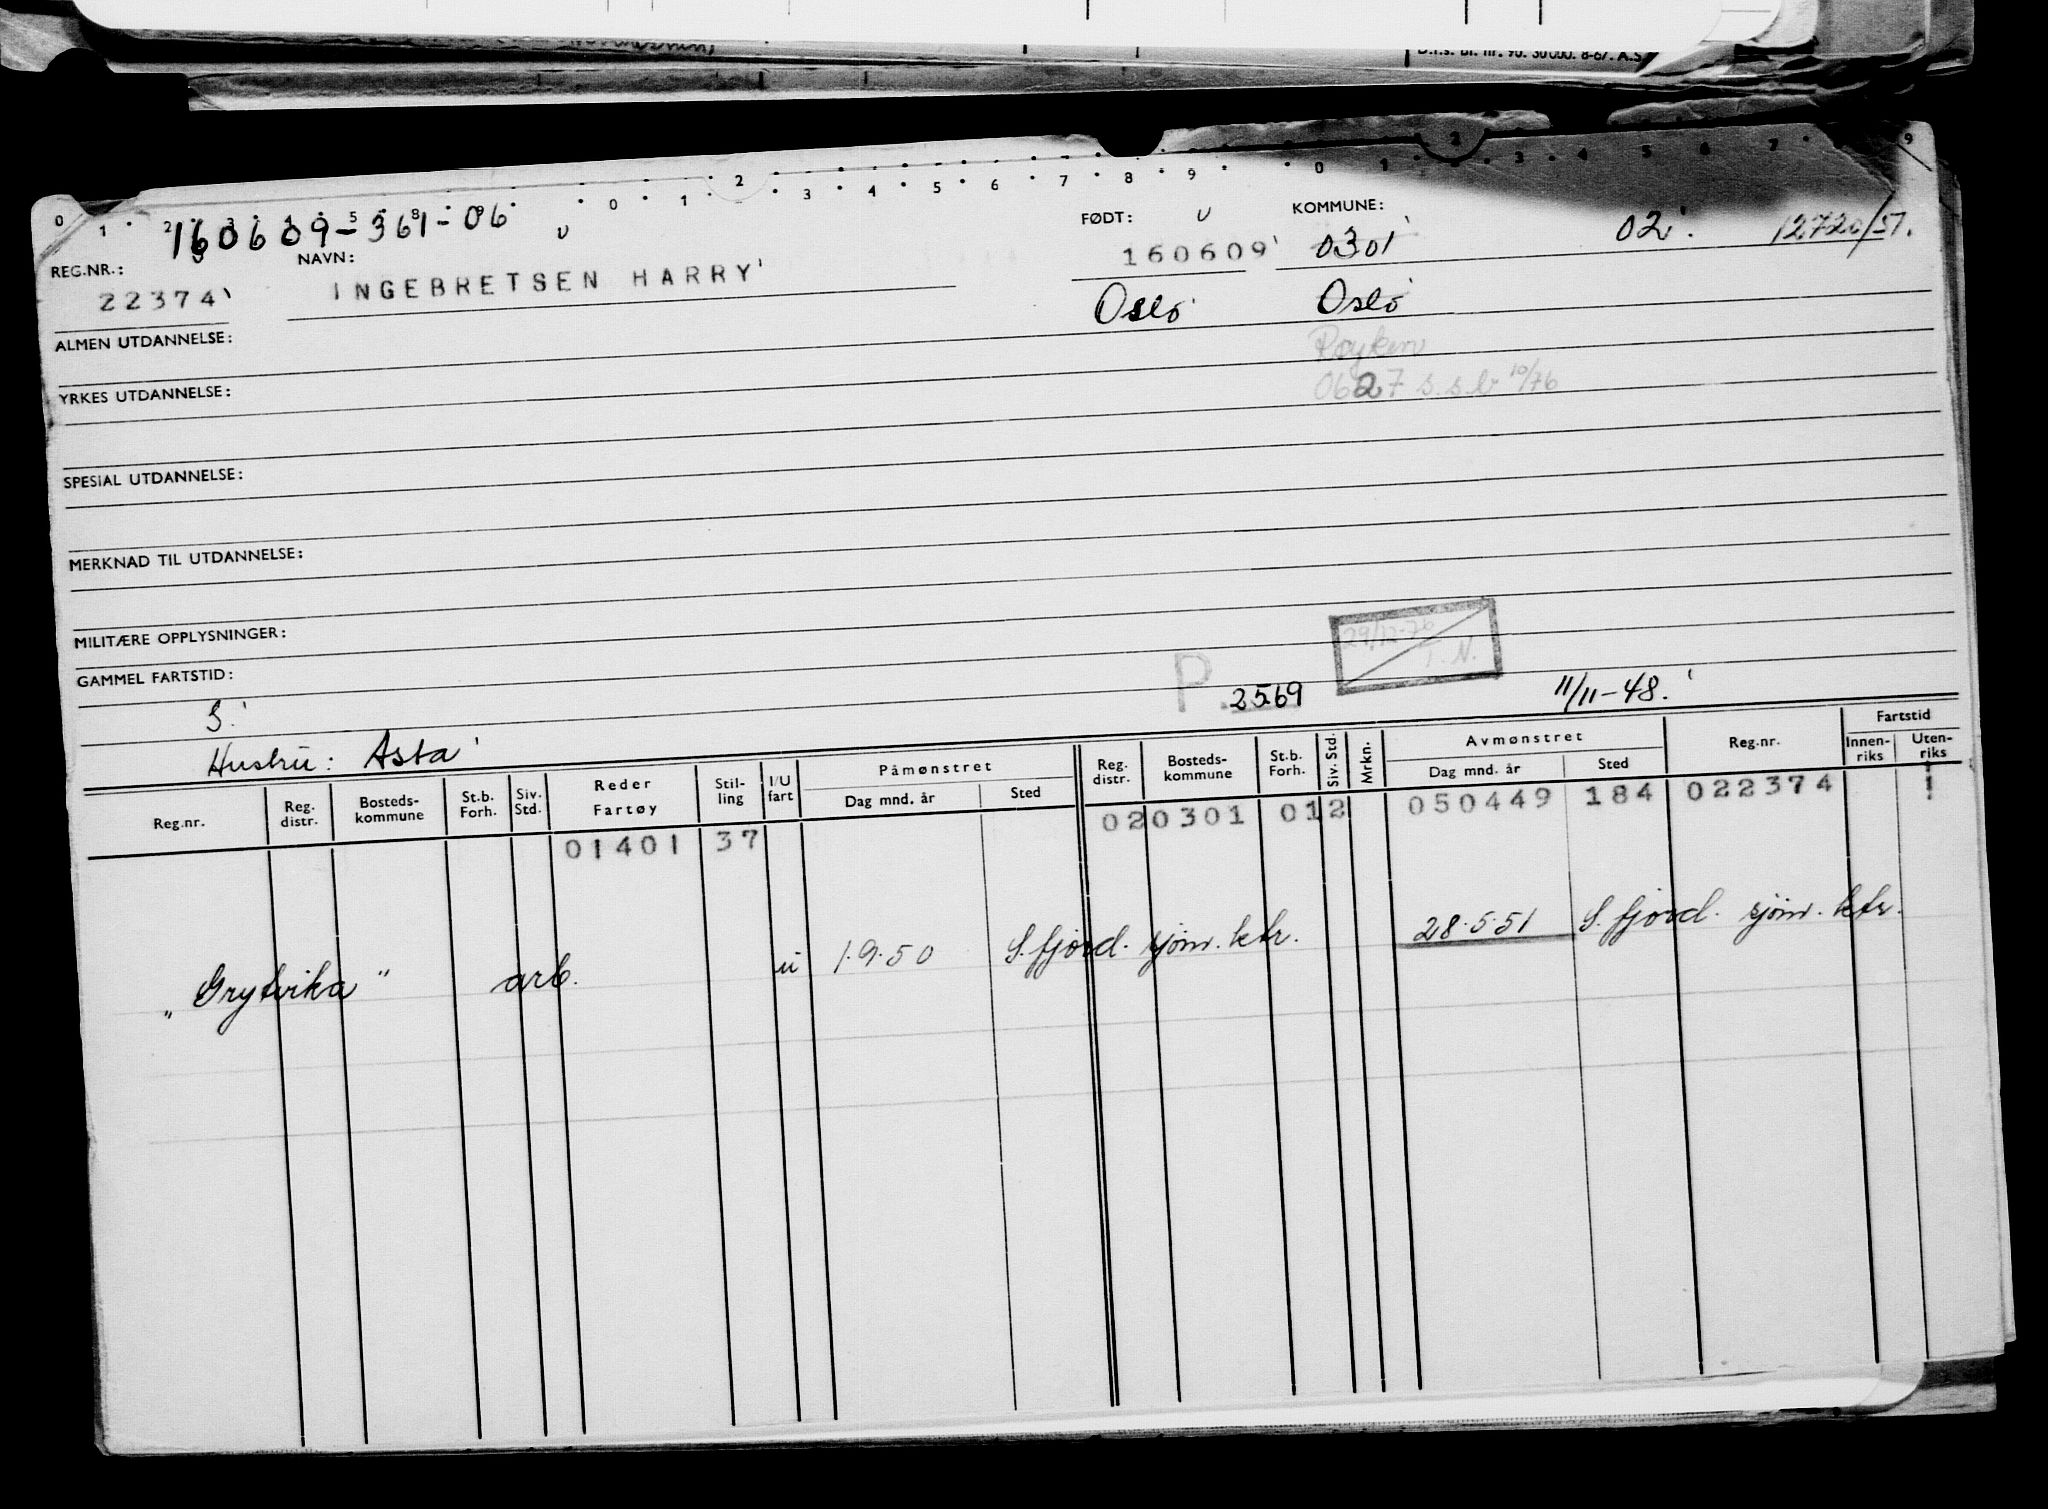 D.T.s. Bl. nr. 90. 30 000. 8-67. A.S
160609-361-06
REG.NR.: NAVN: FØDT: KOMMUNE:
22374 INGEBRETSEN HARRY 160609 0301 02. 12720/51.
Oslo Oslo
ALMEN UTDANNELSE:
Røyken
YRKES UTDANNELSE:
0627 s.s.b 10/76
SPESIAL UTDANNELSE:
MERKNAD TIL UTDANNELSE:
MILITÆRE OPPLYSNINGER:
29/12-76
T. N.
GAMMEL FARTSTID:
P. 2569 11/11-48.
S.
Hustru: Asta
Reg.nr. Reg. distr. Bosteds-kommune St.b. Forh. Siv. Std. Reder Fartøy Stil-ling I/U fart Påmønstret Dag mnd. år Sted Reg. distr. Bosteds-kommune St.b. Forh. Siv. Std. Mrkn. Avmønstret Dag mnd. år Sted Reg.nr. Fartstid Innen-riks Uten-riks
01401 37 020301 012 050449 184 022374 1
„Grytvika" arb. u 1.9.50 S.fjord. sjøm. ktr. 28.5.51 S.fjord. sjøm. ktr.